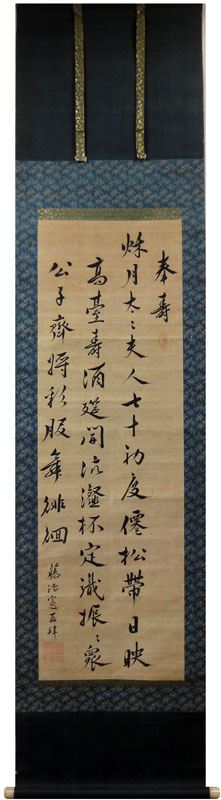 奉壽
秌月太〻夫人七十初度僊松帶日映
高臺壽酒筵開沆瀣杯定識振〻衆
公子齊將彩服舞徘徊
藤治憲拜